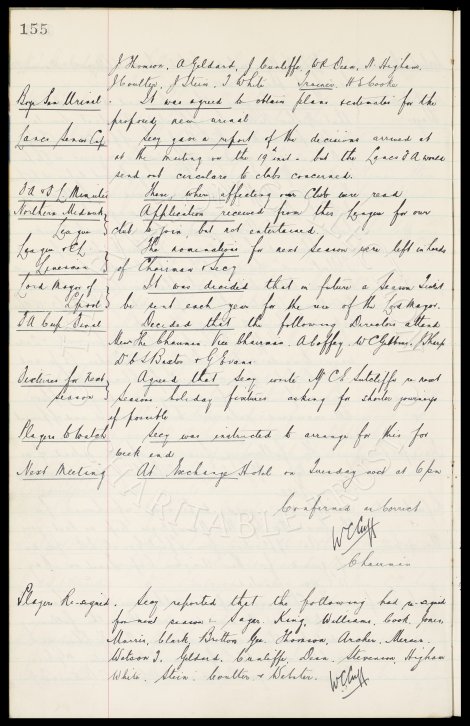 155
J Thomson, A Geldard, J Cunliffe, W R Dean, N Higham,
J Coulter, J Stein, T White Trainer, H E Cooke
Boys Sea Urinal. It was agreed to obtain plans & estimates for the
proposed new urinal
Lancs Senior Cup Secy gave a report of the decisions arrived at
at the meeting on the 19th inst - but the Lancs F A would
send out circulars to clubs concerned.
F A & F L Minutes These, when affecting our Club were read
Northern Midweek Application received from this League for our
League club to join, but not entertained.
League & C L The nominations for next season were left in hands
Linesmen of Chairman & Secy
Lord Mayor of It was decided that in future a Season Ticket
L'pool be sent each year for the use of the Lord Mayor.
F A Cup Final Decided that the following Directors attend
viz The Chairman Vice Chairman, A Coffey, W C Gibbins, J Sharp
Dr C S Baxter & G Evans
Fixtures for Next Agreed that Secy write Mr C E Sutcliffe re next
season season holiday fixtures asking for shorter journeys
if possible
Players to Watch Secy was instructed to arrange for this for
week end
Next Meeting At Exchange Hotel on Tuesday next at 6 pm
Confirmed as Correct
W C Cuff
Chairman
CHARITABLE TRUST
Players Re-signed. Secy reported that the following had re-signed
for next season :- Sagar, King, Williams, Cook, Jones,
Morris, Clark, Britton, Gee, Thomson, Archer, Mercer,
Watson T. Geldard, Cunliffe, Dean, Stevenson, Higham
White, Stein, Coulter & Webster.
W C Cuff